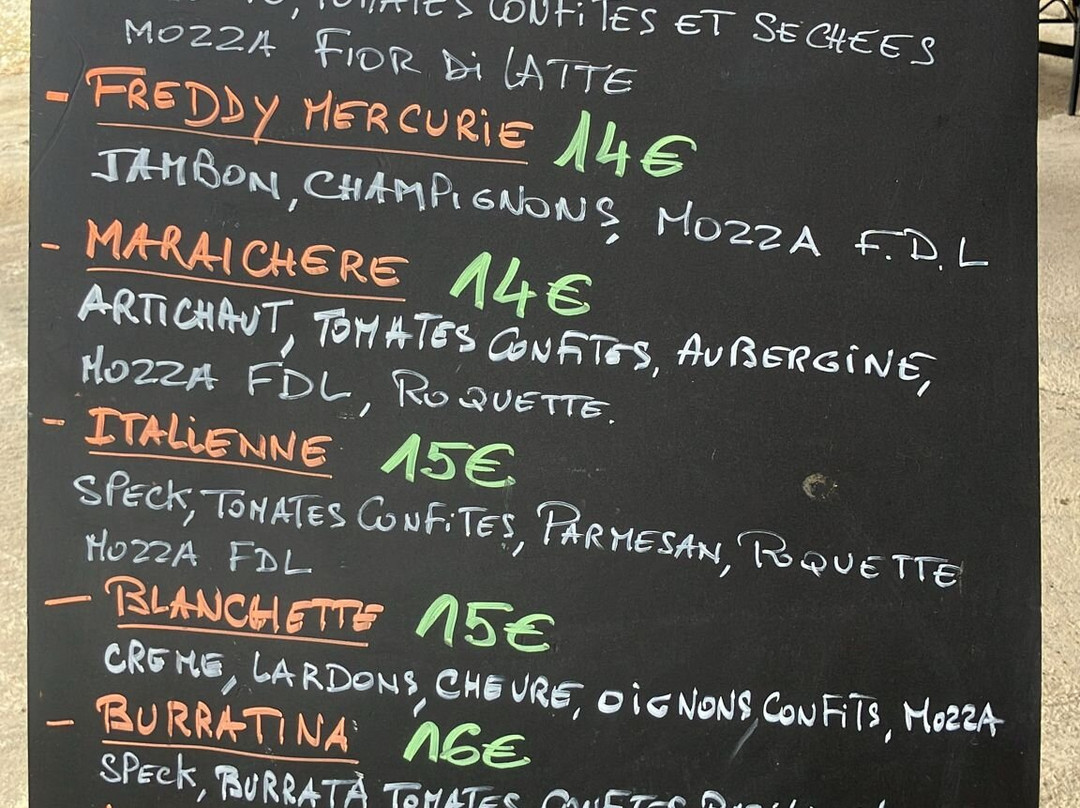 TOMATES CONFITES ET SECHEES
MOZZA FIOR Di LATTE
- FREDDY MERCURiE 14€
JAMBON, CHAMPiGNONS, MOZZA F.D.L
- MARAICHERE 14€
ARTICHAUT, TOMATES CONFITES, AUBERGiNE,
MOZZA FDL, ROQUETTE.
- ITALiENNE 15€
SPECK, TOMATES CONFiTES, PARMESAN, ROQUETTE
MOZZA FDL
- BLANCHETTE 15€
CREME, LARDONS, CHEVRE, OiGNONS CONFiTS, MOZZA
- BURRATINA 16€
SPECK, BURRATA TOMATES CONFITES